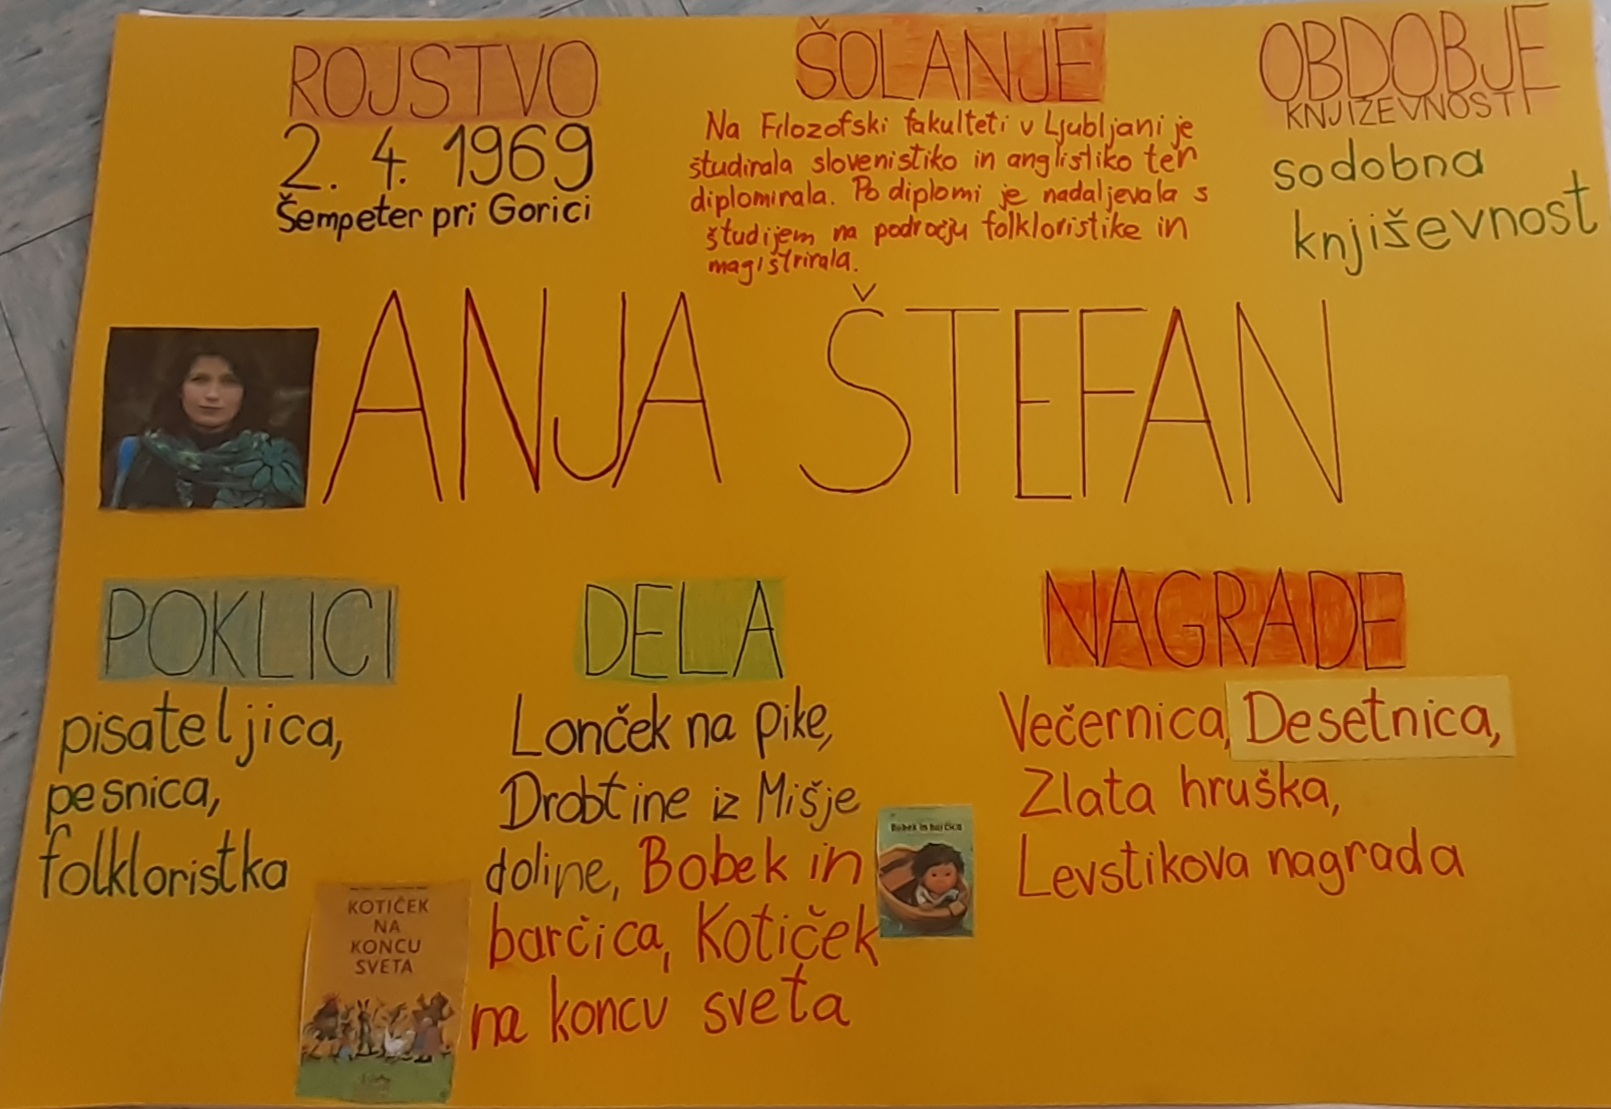 ROJSTVO
2. 4. 1969
Šempeter pri Gorici
ŠOLANJE
Na Filozofski fakulteti v Ljubljani je
študirala slovenistiko in anglistiko ter
diplomirala. Po diplomi je nadaljevala s
študijem na področju folkloristike in
magištrirala.
OBDOBJE
KNJIŽEVNOSTI
sodobna
knjiševnost
ANJA ŠTEFAN
POKLICI
pisateljica,
pesnica,
folkloristka
DELA
Lonček na pike,
Drobtine iz Mišje
doline, Bobek in
barčica, Kotiček
na koncu sveta
KOTIČEK
NA
KONCU
SVETA
Bobek in barčica
NAGRADE
Večernica, Desetnica,
Zlata hruška,
Levstikova nagrada